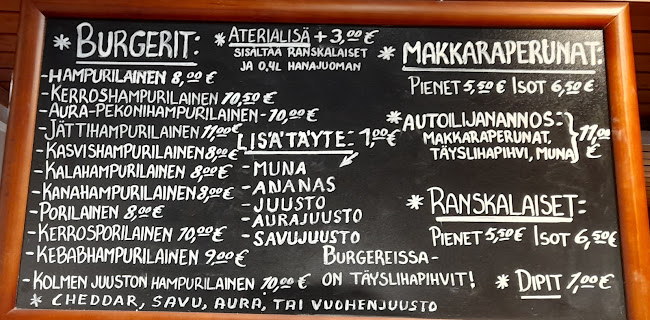 * BURGERIT:
- HAMPURILAINEN 8,00 €
- KERROSHAMPURILAINEN 10,50 €
- AURA-PEKONIHAMPURILAINEN - 10,00 €
- JÄTTIHAMPURILAINEN 11,00 €
- KASVISHAMPURILAINEN 8,00 €
- KALAHAMPURILAINEN 8,00 €
- KANAHAMPURILAINEN 8,00 €
- PORILAINEN 8,00 €
- KERROSPORILAINEN 10,00 €
- KEBABHAMPURILAINEN 9,00 €
- KOLMEN JUUSTON HAMPURILAINEN 10,00 €
* CHEDDAR, SAVU, AURA, TAI VUOHENJUUSTO
* ATERIALISÄ + 3,00 €
SISÄLTÄÄ RANSKALAISET
JA 0,4L HANAJUOMAN
LISÄTÄYTE: 1,00 €
- MUNA
- ANANAS
- JUUSTO
- AURAJUUSTO
- SAVUJUUSTO
BURGEREISSA -
ON TÄYSLIHAPIHVIT!
* MAKKARAPERUNAT:
PIENET 5,50 € ISOT 6,50 €
* AUTOILIJANANNOS:
MAKKARAPERUNAT,
TÄYSLIHAPIHVI, MUNA } 11,00 €
* RANSKALAISET:
PIENET 5,50 € ISOT 6,50 €
* DIPIT 1,00 €